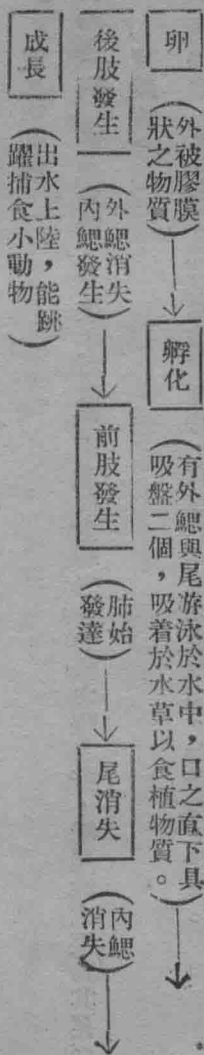 卵
(外被膠膜
狀之物質)
孵化
(有外鰓與尾游泳於水中,口之直下具
吸盤二個,吸着於水草以食植物質。)
後肢發生
(外鰓消失
內鰓發生)
前肢發生
(肺始
發達)
尾消失
(內鰓
消失)
成長
(出水上陸,能跳
躍捕食小動物)